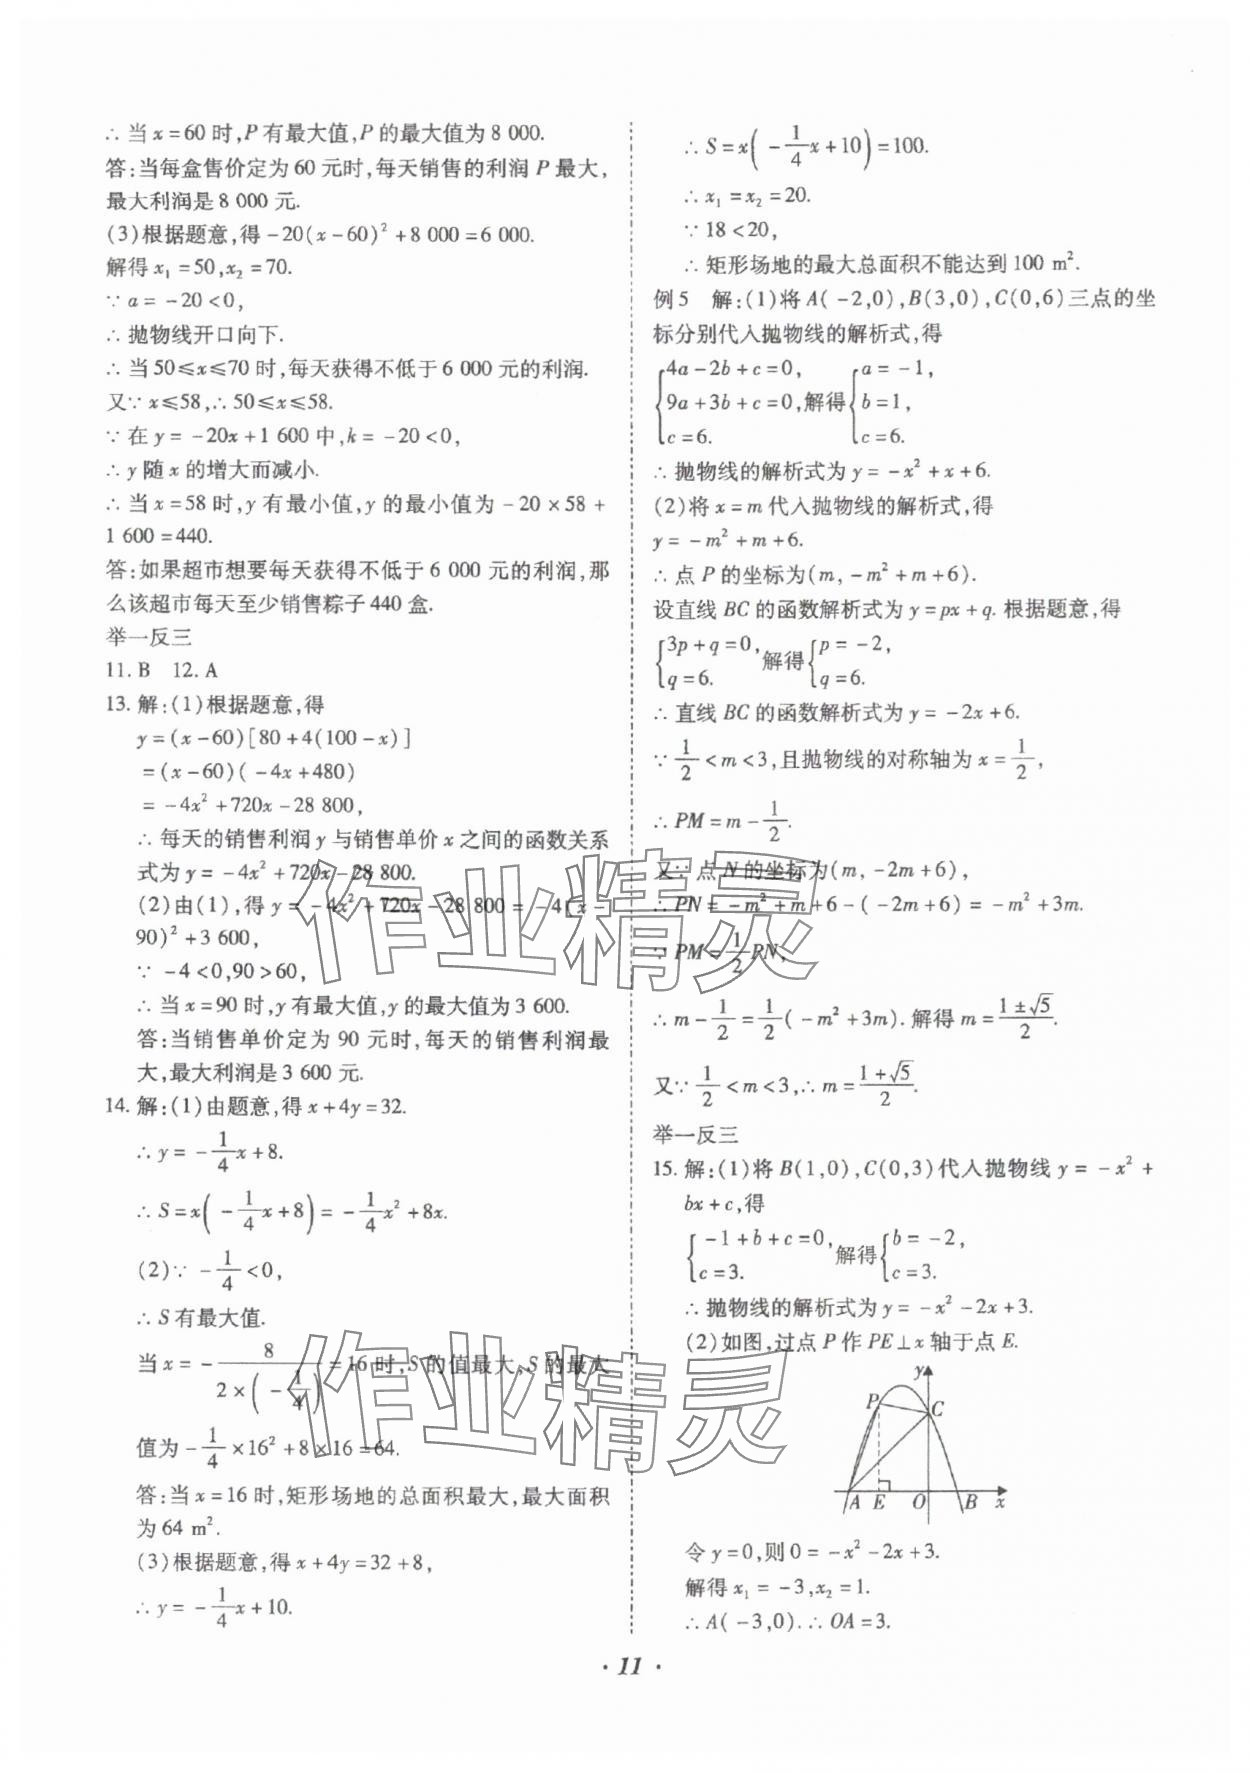 ∴ 当 x=60 时,P 有最大值,P 的最大值为 8 000.
答:当每盒售价定为 60 元时,每天销售的利润 P 最大,
最大利润是 8 000 元.
(3)根据题意,得 -20(x-60)²+8 000=6 000.
解得 x₁=50,x₂=70.
∵ a=-20<0,
∴ 抛物线开口向下.
∴ 当 50≤x≤70 时,每天获得不低于 6 000 元的利润.
又∵ x≤58,∴ 50≤x≤58.
∵ 在 y=-20x+1 600 中,k=-20<0,
∴ y 随 x 的增大而减小.
∴ 当 x=58 时,y 有最小值,y 的最小值为 -20×58+
1 600=440.
答:如果超市想要每天获得不低于 6 000 元的利润,那
么该超市每天至少销售粽子 440 盒.
举一反三
11. B 12. A
13. 解:(1)根据题意,得
y=(x-60)[80+4(100-x)]
=(x-60)(-4x+480)
=-4x²+720x-28 800,
∴ 每天的销售利润 y 与销售单价 x 之间的函数关系
式为 y=-4x²+720x-28 800.
(2)由(1),得 y=-4x²+720x-28 800=-4(x-
90)²+3 600,
∵ -4<0,90>60,
∴ 当 x=90 时,y 有最大值,y 的最大值为 3 600.
答:当销售单价定为 90 元时,每天的销售利润最
大,最大利润是 3 600 元.
14. 解:(1)由题意,得 x+4y=32.
∴ y=-1/4x+8.
∴ S=x(-1/4x+8)=-1/4x²+8x.
(2)∵ -1/4<0,
∴ S 有最大值.
当 x=-8/(2×(-1/4))=16 时,S 的值最大,S 的最大
值为 -1/4×16²+8×16=64.
答:当 x=16 时,矩形场地的总面积最大,最大面积
为 64 m².
(3)根据题意,得 x+4y=32+8,
∴ y=-1/4x+10.
∴ S=x(-1/4x+10)=100.
∴ x₁=x₂=20.
∵ 18<20,
∴ 矩形场地的最大总面积不能达到 100 m².
例 5 解:(1)将 A(-2,0),B(3,0),C(0,6)三点的坐
标分别代入抛物线的解析式,得
{4a-2b+c=0, {a=-1,
9a+3b+c=0,解得 b=1,
c=6. c=6.
∴ 抛物线的解析式为 y=-x²+x+6.
(2)将 x=m 代入抛物线的解析式,得
y=-m²+m+6.
∴ 点 P 的坐标为(m,-m²+m+6).
设直线 BC 的函数解析式为 y=px+q. 根据题意,得
{3p+q=0, 解得 {p=-2,
q=6. q=6.
∴ 直线 BC 的函数解析式为 y=-2x+6.
∵ 1/2<m<3,且抛物线的对称轴为 x=1/2,
∴ PM=m-1/2.
又∵ 点 N 的坐标为(m,-2m+6),
∴ PN=-m²+m+6-(-2m+6)=-m²+3m.
∵ PM=1/2PN,
∴ m-1/2=1/2(-m²+3m). 解得 m=(1±√5)/2.
又∵ 1/2<m<3,∴ m=(1+√5)/2.
举一反三
15. 解:(1)将 B(1,0),C(0,3)代入抛物线 y=-x²+
bx+c,得
{-1+b+c=0, 解得 {b=-2,
c=3. c=3.
∴ 抛物线的解析式为 y=-x²-2x+3.
(2)如图,过点 P 作 PE⊥x 轴于点 E.
y
P C
A E O B x
令 y=0,则 0=-x²-2x+3.
解得 x₁=-3,x₂=1.
∴ A(-3,0). ∴ OA=3.
· 11 ·
作业精灵
作业精灵